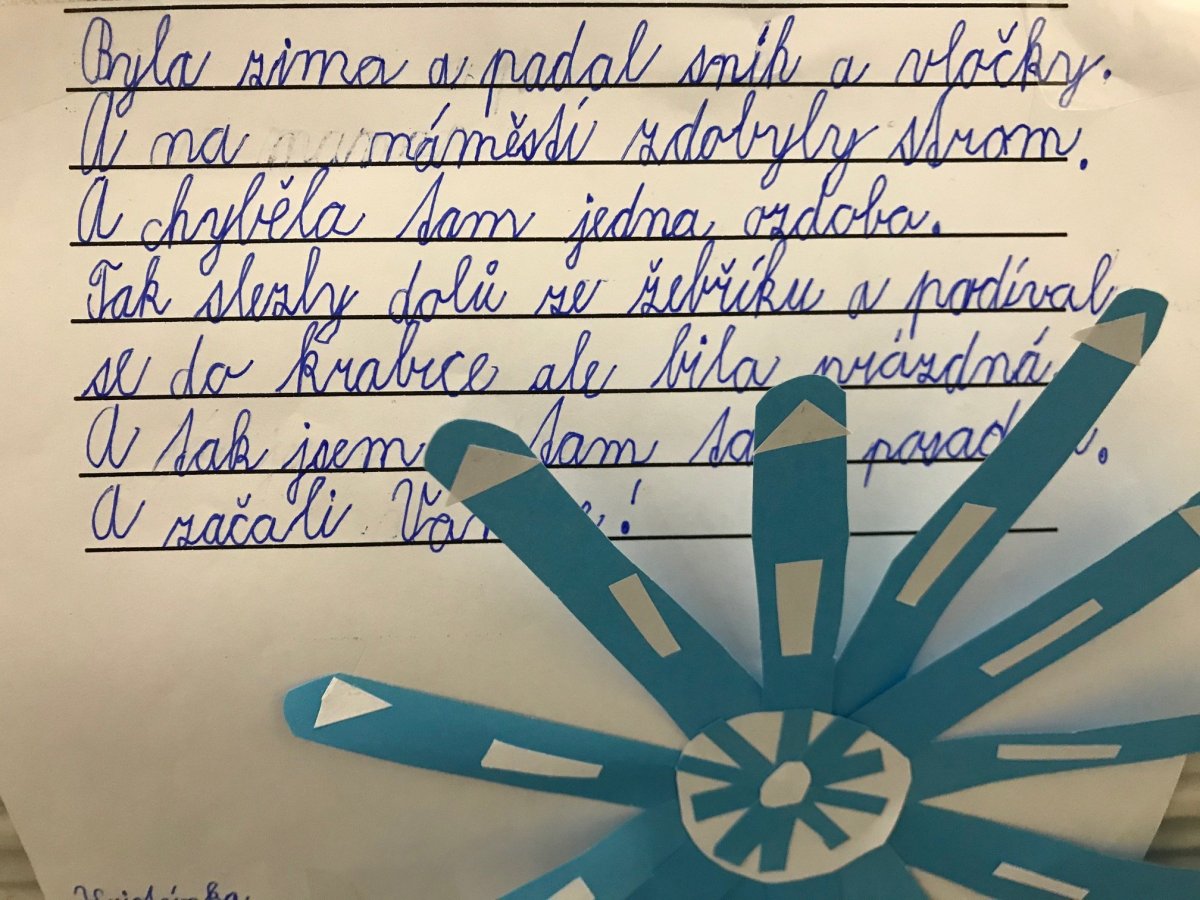 Byla zima a padal sníh a vločky.
A na náměstí zdobyly strom.
A chyběla tam jedna ozdoba.
Tak slezly dolů ze žebříku a podíval
se do krabice ale bila prázdná
A tak jsem tam
A začali